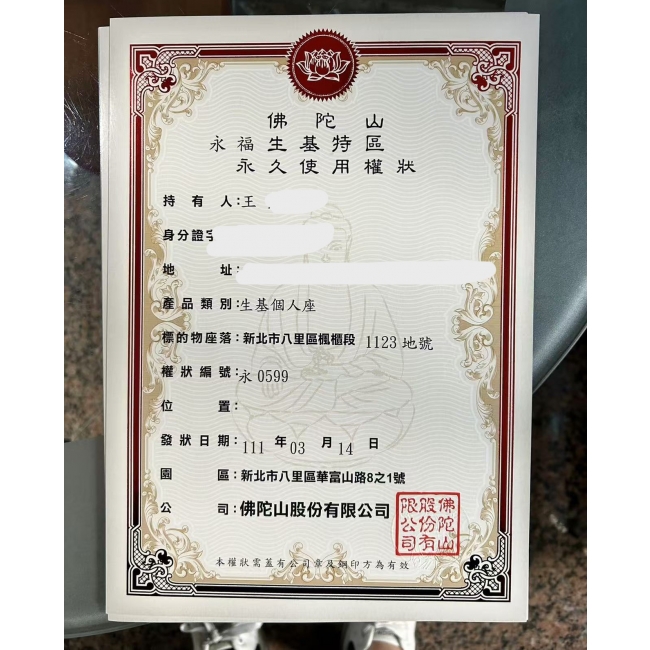 佛陀山
永福生基特區
永久使用權狀
持有人：王
身分證字
地址：
產品類別：生基個人座
標的物座落：新北市八里區楓櫃段 1123地號
權狀編號：永0599
位置：
發狀日期：111年03月14日
園區：新北市八里區華富山路8之1號
公司：佛陀山股份有限公司
佛陀山
股份有
限公司
本權狀需蓋有公司章及鋼印方為有效